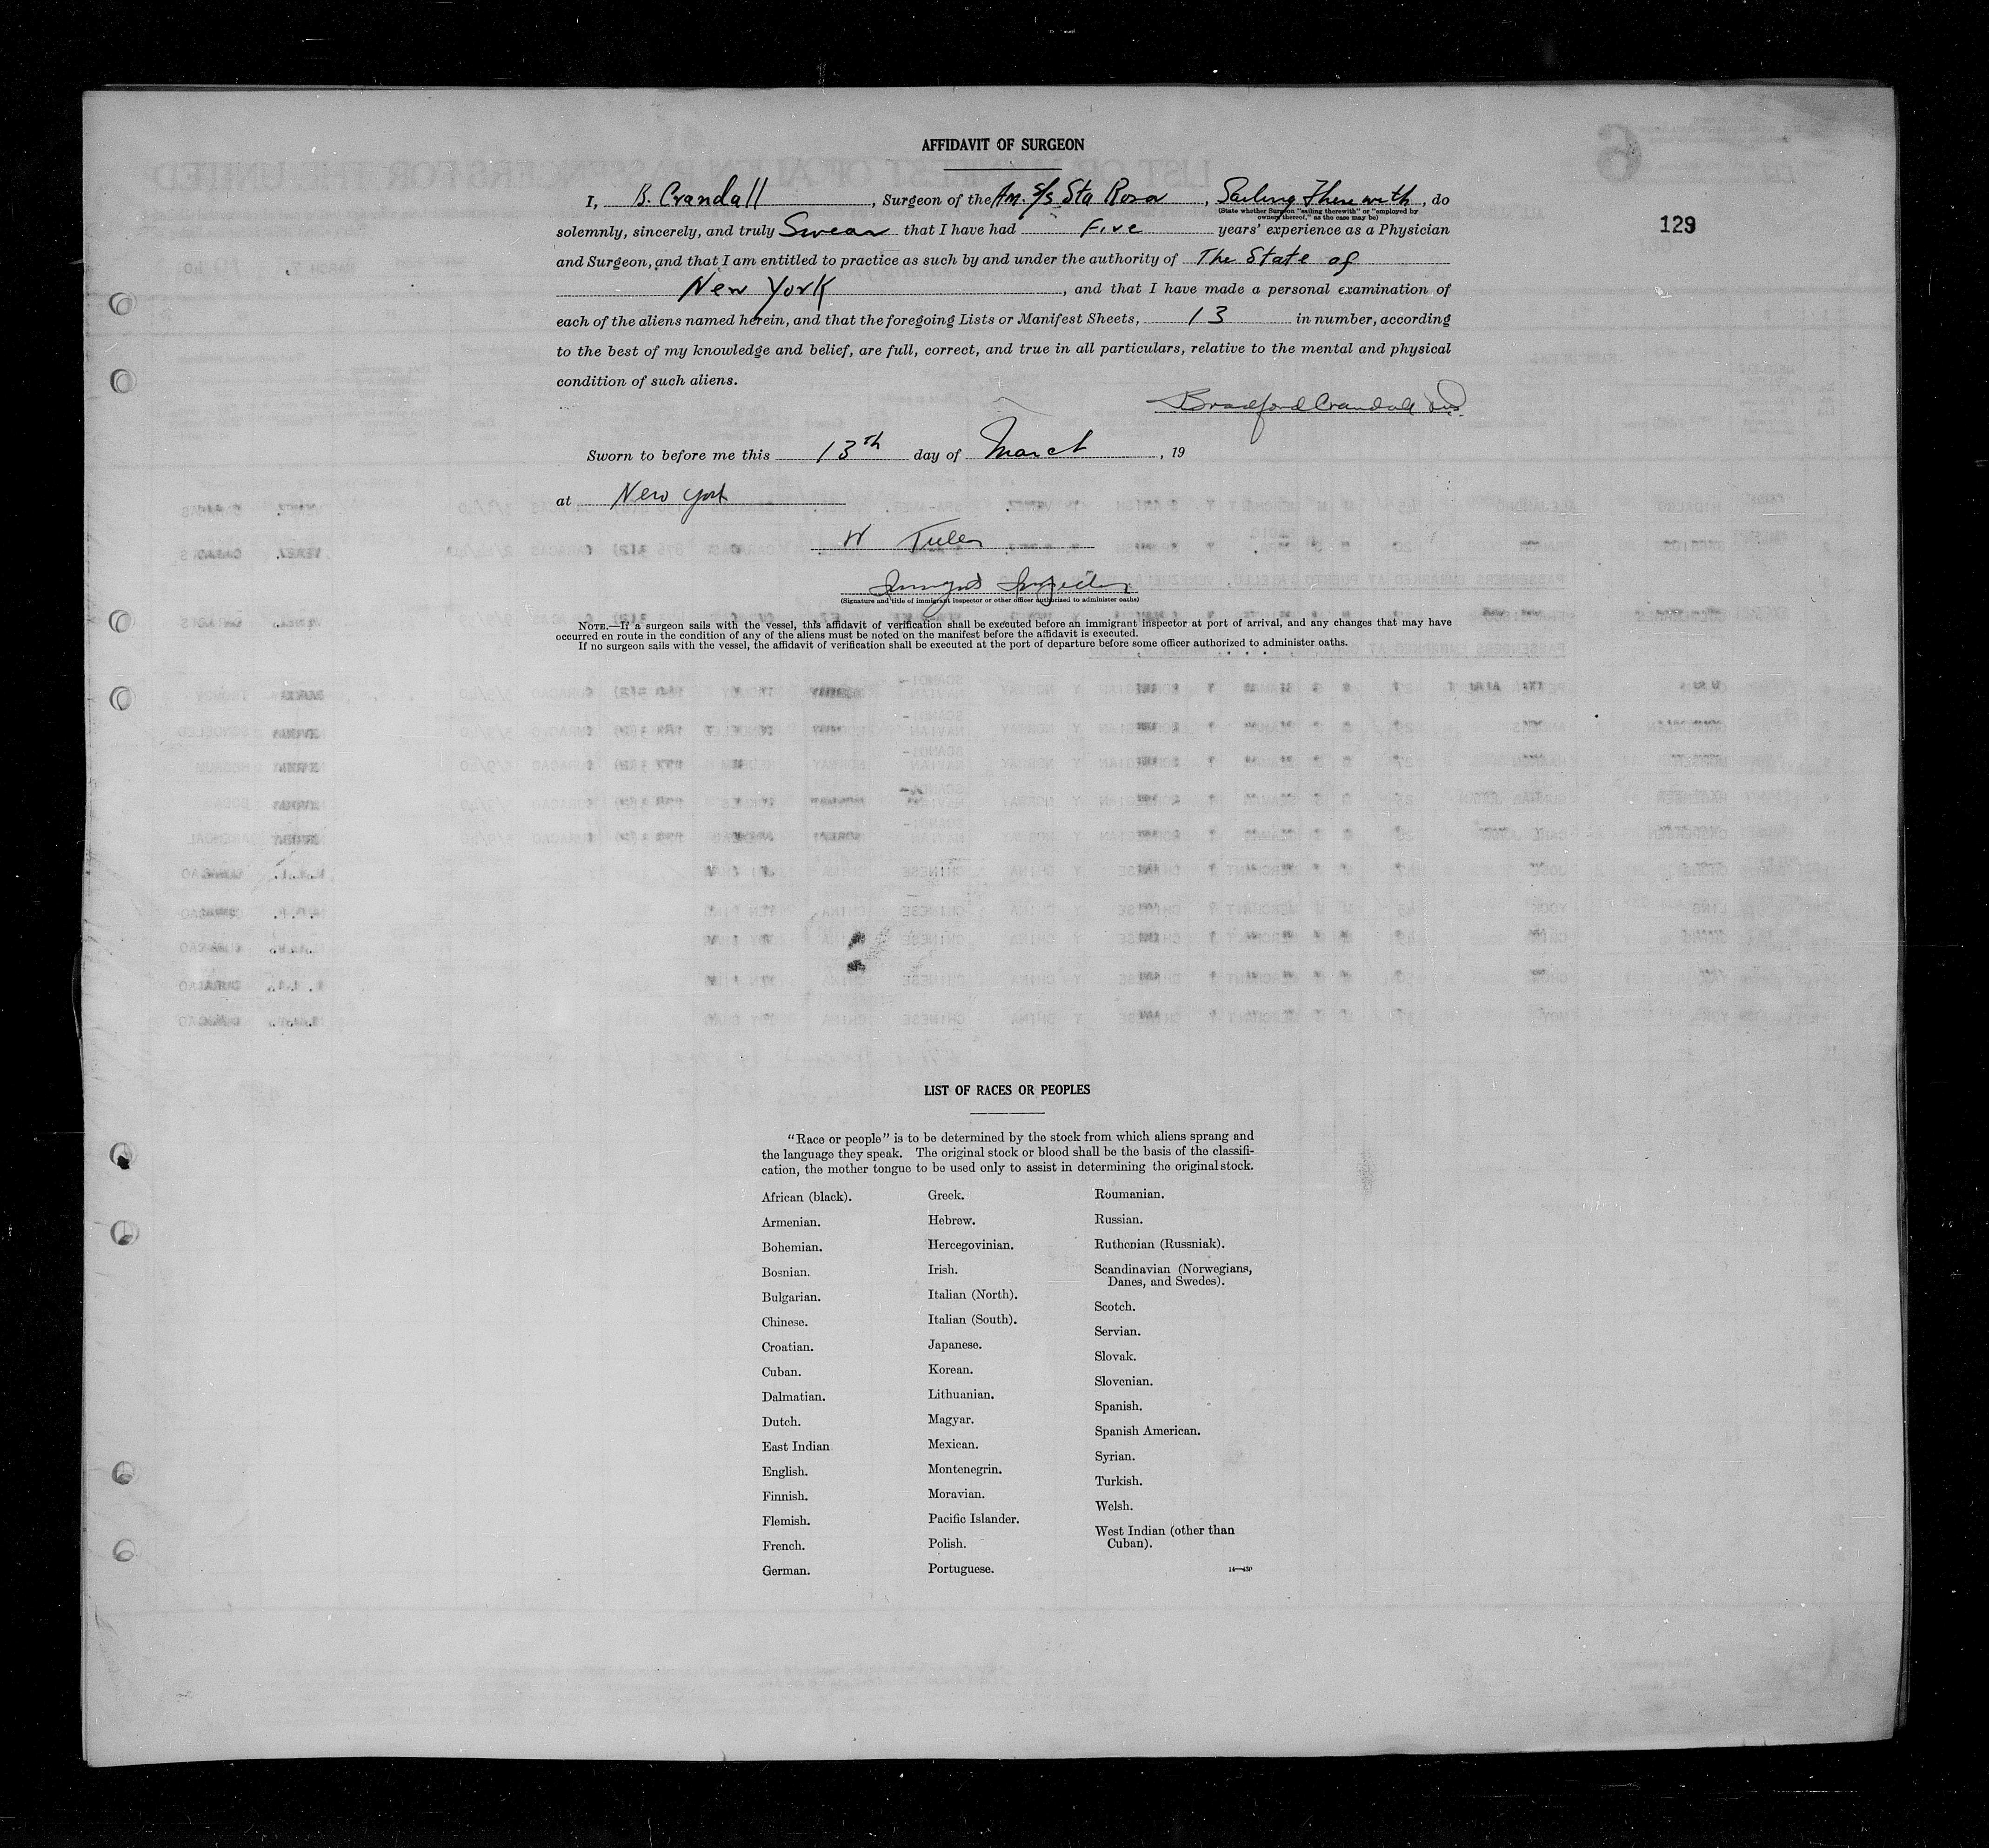 AFFIDAVIT OF SURGEON
I, B. Crandall, Surgeon of the Am. S/S Sta Rosa, Sailing Therewith, do
(State whether Surgeon "sailing therewith" or "employed by
owners thereof," as the case may be)
129
solemnly, sincerely, and truly Swear that I have had Five years' experience as a Physician
and Surgeon, and that I am entitled to practice as such by and under the authority of The State of
New York, and that I have made a personal examination of
each of the aliens named herein, and that the foregoing Lists or Manifest Sheets, 13 in number, according
to the best of my knowledge and belief, are full, correct, and true in all particulars, relative to the mental and physical
condition of such aliens.
Bradford Crandall
Sworn to before me this 13th day of March, 19
at New York
W
Inspector
(Signature and title of immigrant inspector or other officer authorized to administer oaths)
NOTE.—If a surgeon sails with the vessel, this affidavit of verification shall be executed before an immigrant inspector at port of arrival, and any changes that may have
occurred en route in the condition of any of the aliens must be noted on the manifest before the affidavit is executed.
If no surgeon sails with the vessel, the affidavit of verification shall be executed at the port of departure before some officer authorized to administer oaths.
LIST OF RACES OR PEOPLES
"Race or people" is to be determined by the stock from which aliens sprang and
the language they speak. The original stock or blood shall be the basis of the classifi-
cation, the mother tongue to be used only to assist in determining the original stock.
African (black).
Armenian.
Bohemian.
Bosnian.
Bulgarian.
Chinese.
Croatian.
Cuban.
Dalmatian.
Dutch.
East Indian
English.
Finnish.
Flemish.
French.
German.
Greek.
Hebrew.
Hercegovinian.
Irish.
Italian (North).
Italian (South).
Japanese.
Korean.
Lithuanian.
Magyar.
Mexican.
Montenegrin.
Moravian.
Pacific Islander.
Polish.
Portuguese.
Roumanian.
Russian.
Ruthenian (Russniak).
Scandinavian (Norwegians,
Danes, and Swedes).
Scotch.
Servian.
Slovak.
Slovenian.
Spanish.
Spanish American.
Syrian.
Turkish.
Welsh.
West Indian (other than
Cuban).